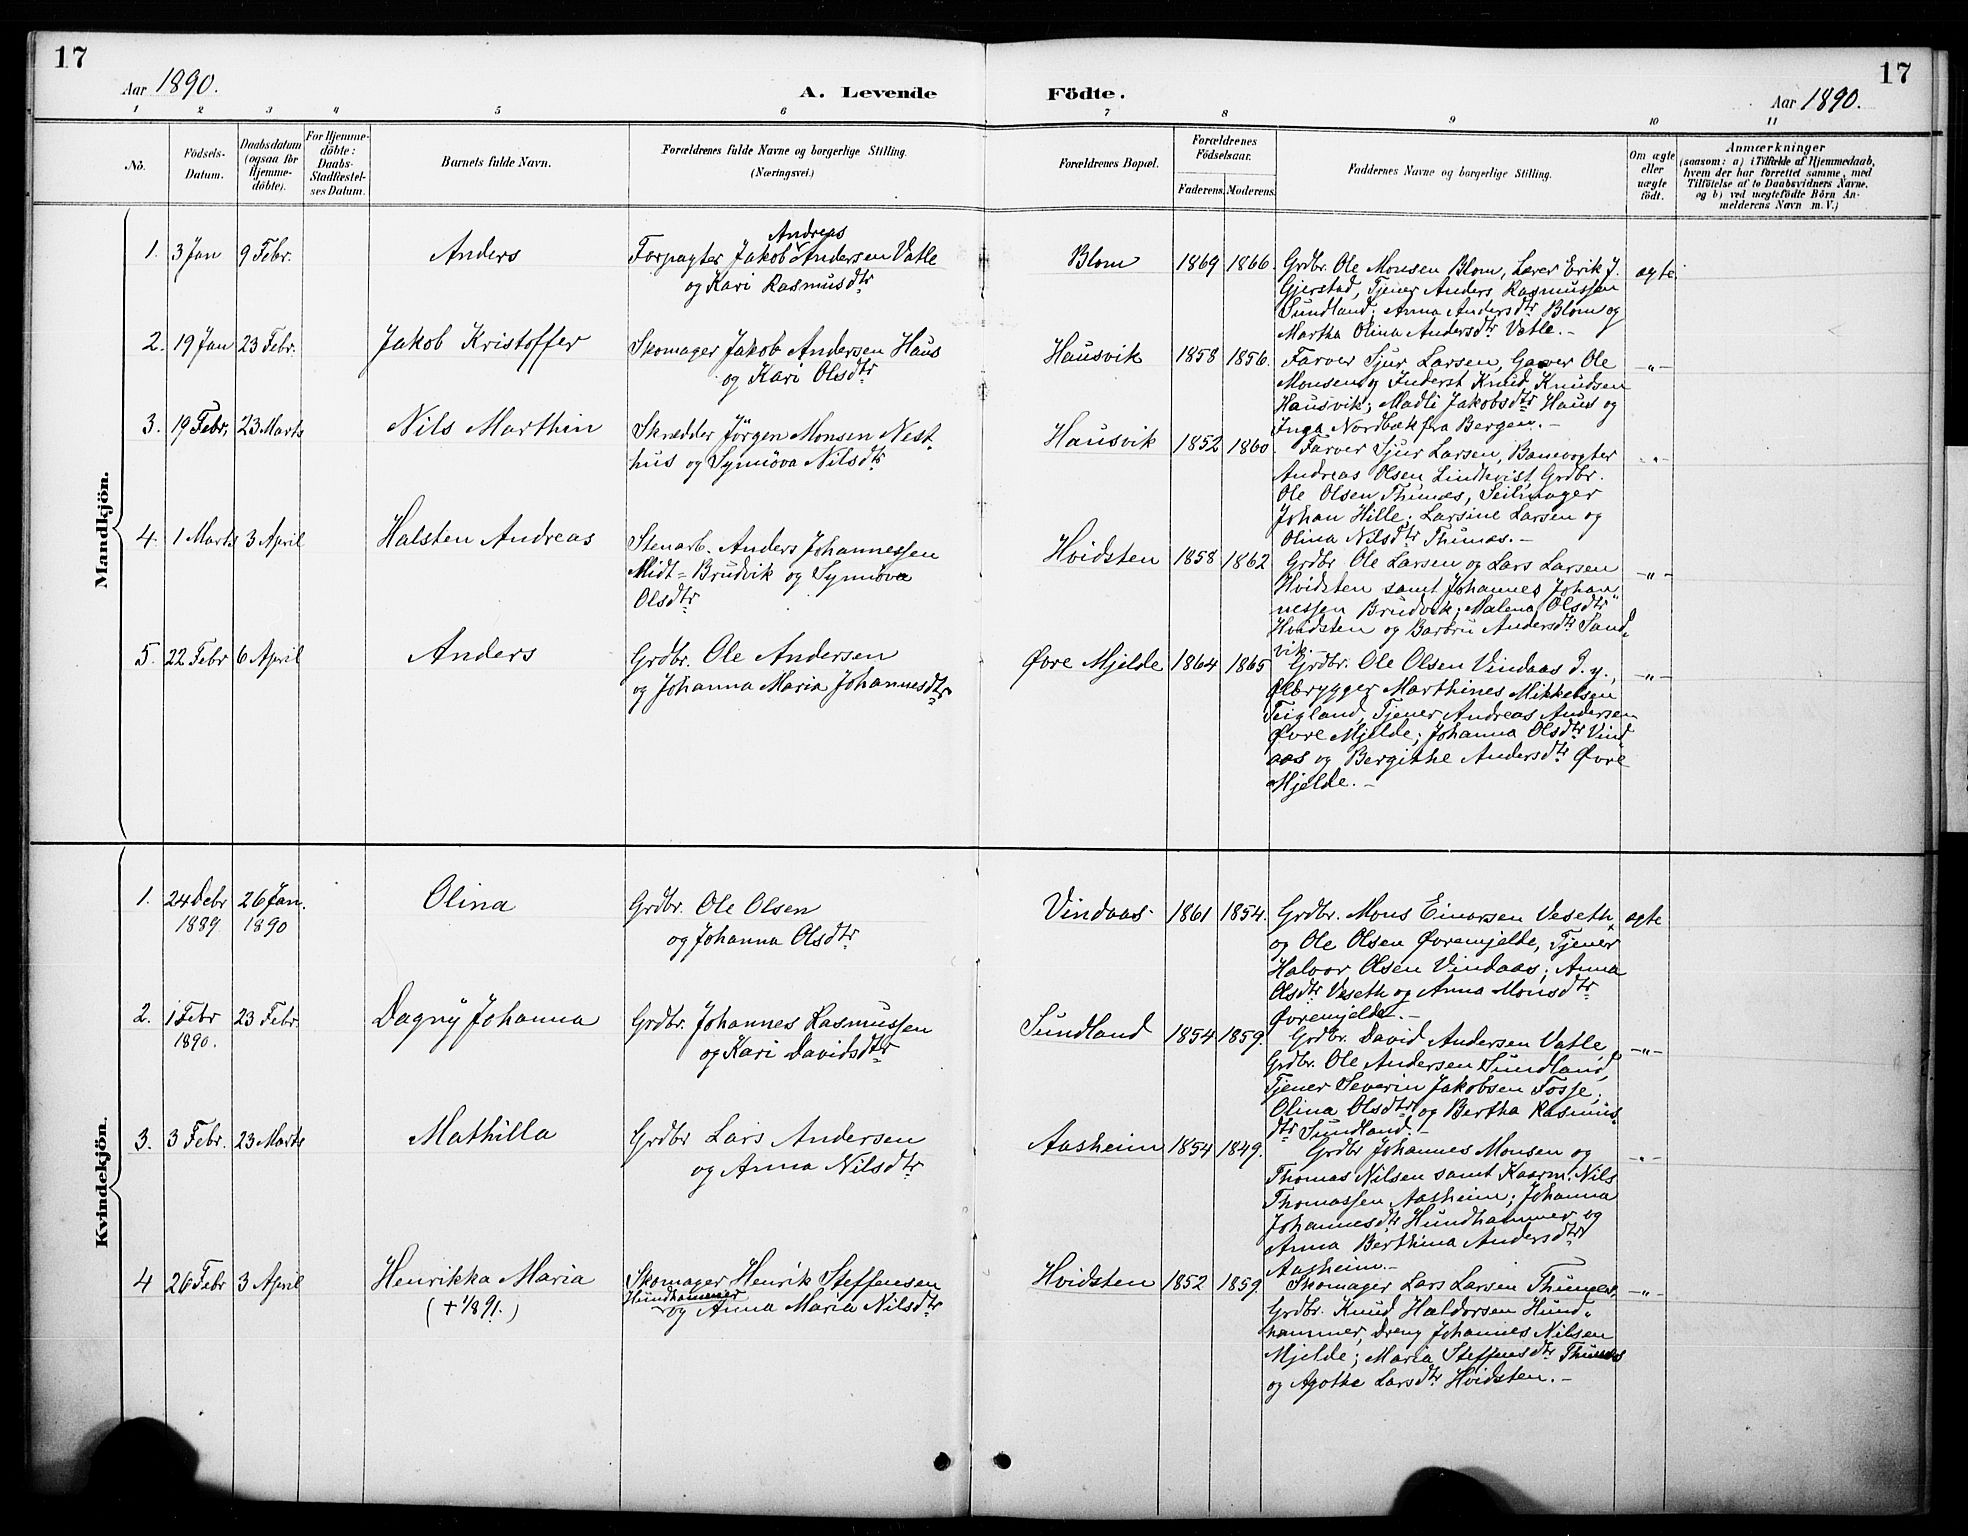 17
Aar 1890.
A. Levende
Födte.
17
Aar 1890.
1 2 3 4 5 6 7 8 9 10 11
No.
Födsels-Datum.
Daabsdatum (ogsaa for Hjemme-döbte).
For Hjemme-döbte: Daabs-Stadfæstel-ses Datum.
Barnets fulde Navn.
Forældrenes fulde Navne og borgerlige Stilling.
(Næringsvei.)
Forældrenes Bopæl.
Forældrenes Födselsaar.
Faderens. Moderens.
Faddernes Navne og borgerlige Stilling.
Om ægte eller uægte födt.
Anmærkninger
(saasom: a) i Tilfælde af Hjemmedaab,
hvem der har forrettet samme, med
Tilföielse af to Daabsvidners Navne,
og b) ved uægtefödte Börn An-
melderens Navn m. V.)
Mandkjön.
1. 3 Jan 9 Febr. Anders
Andreas
Forpagter Jakob Andersen Vatle
og Kari Rasmusdtr
Blom 1869 1866.
Grdbr. Ole Monsen Blom, Lærer Erik J.
Gjerstad, Tjener Anders Rasmussen
Sundland; Anna Andersdtr Blom og
Martha Olina Andersdtr Vatle. -
ægte
2. 19 Jan 23 Febr. Jakob Kristoffer
Skomager Jakob Andersen Haus
og Kari Olsdtr
Hausvik 1858 1856.
Farver Sjur Larsen, Garver Ole
Monsen og Inderst Knud Knudsen
Hausvik; Madli Jakobsdtr Haus og
Inga Nordbæk fra Bergen. -
-"-
3. 19 Febr, 23 Marts Nils Marthin
Skrædder Jörgen Monsen Nest-
hus og Synnöva Nilsdtr
Hausvik 1852 1860.
Farver Sjur Larsen, Banevogter
Andreas Olsen Lindkvist, Grdbr.
Ole Olsen Thunæs, Seilmager
Johan Hille; Larsine Larsen og
Olina Nilsdtr Thunæs. -
-"-
4. 1 Marts 3 April Halsten Andreas
Stenarb. Anders Johannessen
Midt-Brudvik og Synnöva
Olsdtr
Hvidsten 1858 1862
Grdbr Ole Larsen og Lars Larsen
Hvidsten samt Johannes Johan-
nessen Brudvik; Malena Olsdtr
Hvidsten og Barbru Andersdtr Sand-
vik.
-"-
5. 22 Febr 6 April Anders
Grdbr. Ole Andersen
og Johanna Maria Johannesdtr
Øvre Mjelde 1864 1865
Grdbr. Ole Olsen Vindaas d. y.,
Ølbrygger Marthines Mikkelsen
Teigland, Tjener Andreas Andersen
Øvre Mjelde; Johanna Olsdtr Vind-
aas og Bergithe Andersdtr Øvre
Mjelde. -
-"-
Kvindekjön.
1. 24 Debr 1889 26 Jan. 1890 Olina
Grdbr. Ole Olsen
og Johanna Olsdtr
Vindaas 1861 1854.
Grdbr. Mons Einarsen Veseth
og Ole Olsen Øvremjelde, Tjener
Halvor Olsen Vindaas; Anna
Olsdtr Veseth og Anna Monsdtr
Øvremjelde. -
ægte
2. 1 Febr 1890. 23 Febr. Dagny Johanna
Grdbr. Johannes Rasmussen
og Kari Davidsdtr
Sundland 1854 1859.
Grdbr. David Andersen Vatle,
Grdbr. Ole Andersen Sundland,
Tjener Severin Jakobsen Fosse;
Olina Olsdtr og Bertha Rasmus-
dtr Sundland. -
-"-
3. 3 Febr. 23 Marts Mathilla
Grdbr Lars Andersen
og Anna Nilsdtr
Aasheim 1854 1849.
Grdbr Johannes Monsen og
Thomas Nilsen samt Kaarm. Nils
Thomassen Aasheim; Johanna
Johannesdtr Hundhammer og
Anna Berthina Andersdtr
Aasheim. -
-"-
4 26 Febr 3 April Henrikka Maria
(+ 1/8 91.)
Skomager Henrik Steffensen
Hundhammer
og Anna Maria Nilsdtr
Hvidsten 1852 1859.
Skomager Lars Larsen Thunæs,
Grdbr. Knud Haldorsen Hund-
hammer, Dreng Johannes Nilsen
Mjelde; Maria Steffensdtr Thunæs
og Agothe Larsdtr Hvidsten. -
-"-